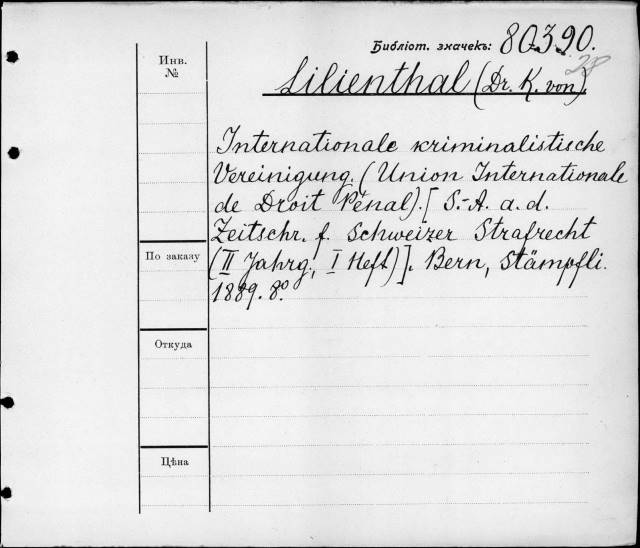 Библіот. значекъ: 80390.
28
Инв.
№
Lilienthal (Dr. K. von).
Internationale kriminalistische
Vereinigung. (Union Internationale
de Droit Pénal). [S.-A. a. d.
Zeitschr. f. Schweizer Strafrecht
По заказу
(II Jahrg., I Heft)]. Bern, Stämpfli.
1889. 8º.
Откуда
Цѣна